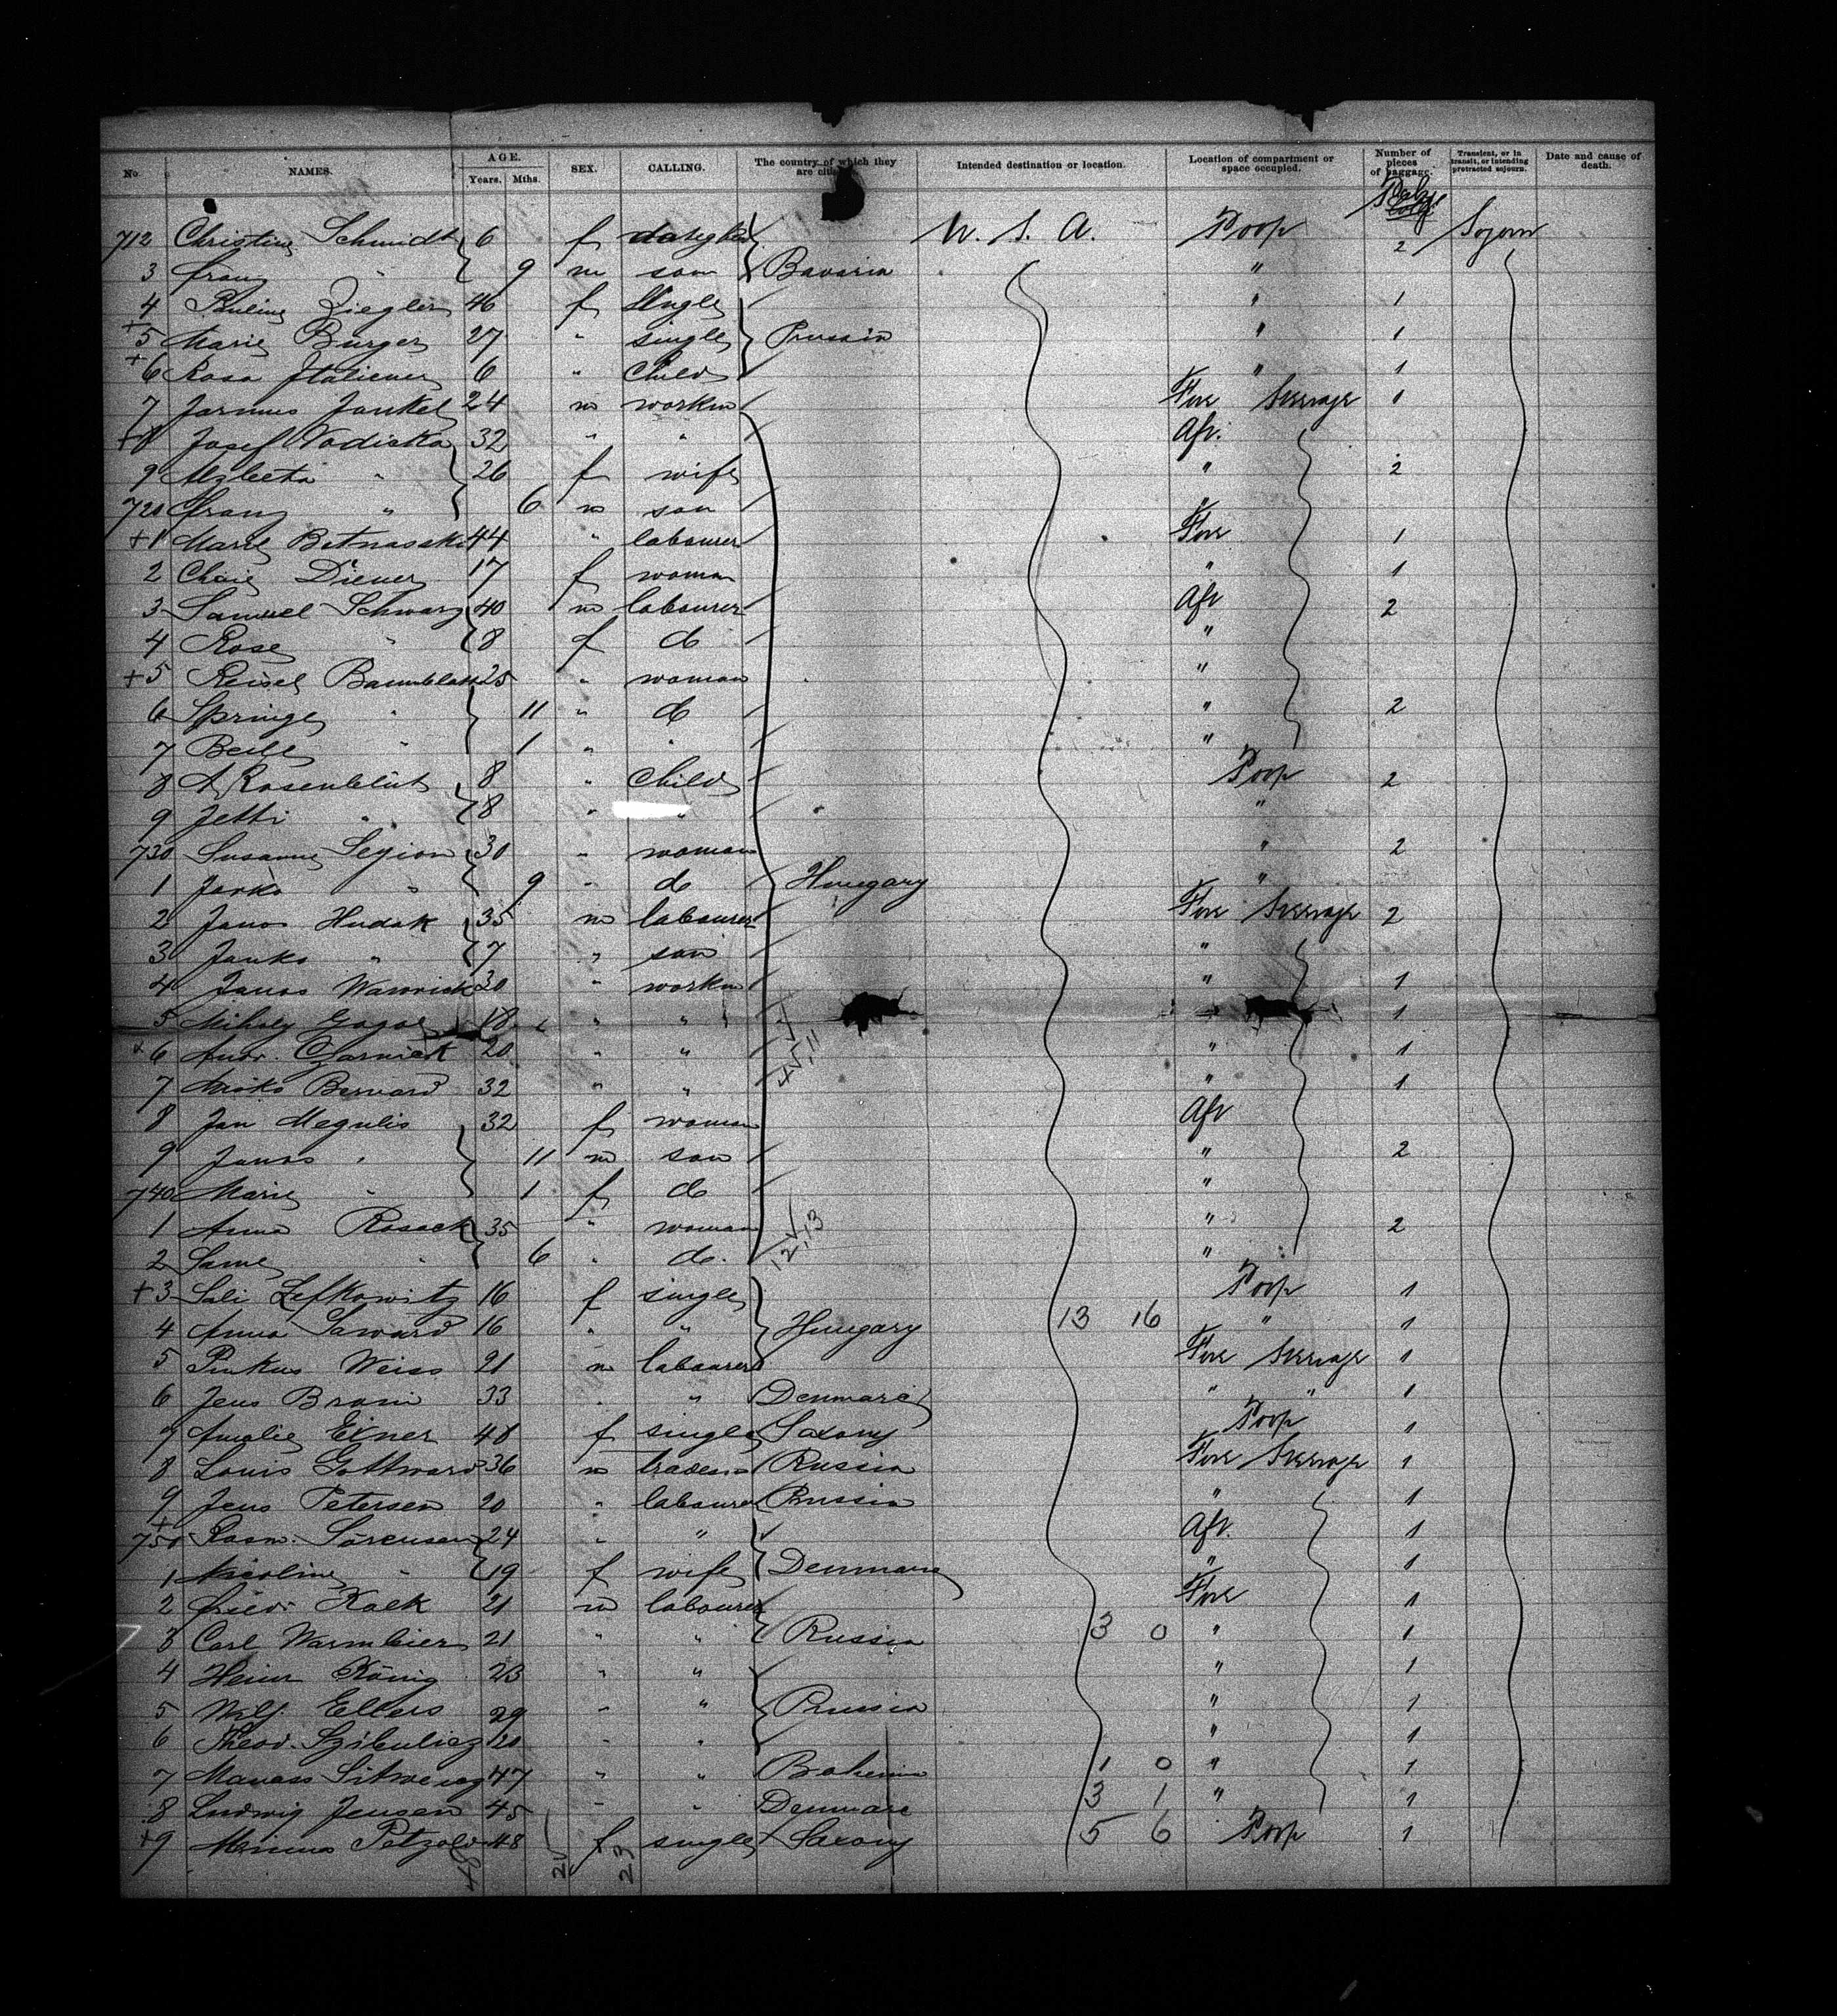 No. NAMES. AGE. Years. Mths. SEX. CALLING. The country of which they are citizens. Intended destination or location. Location of compartment or space occupied. Number of pieces of baggage. Transient, or in transit, or intending protracted sojourn. Date and cause of death.
712 Christine Schmidt 6 f daughter U. S. A. Poop 2 Sojourn
3 Franz " 9 m son Bavaria "
4 Pauline Ziegler 46 f single " 1
+5 Marie Burger 27 " single Prussia " 1
+6 Rosa Italiener 6 " Child " 1
7 Jarmus Jankel 24 m workm Fore Steerage 1
+8 Josef Vodicka 32 " " Aft.
9 Alzbeta " 26 f wife " 2
720 Franz " 6 m son "
+1 44 " labourer Fore 1
2 Chaie Diener 17 f woman " 1
3 Samuel Schwarz 40 m labourer Aft 2
4 Rose " 8 f do "
+5 Reisel Baumblatt 25 " woman "
6 Springe " 11 " do " 2
7 Beile " 1 " " "
8 A. Rosenblüt 8 " Child Poop 2
9 Jetti " 8 " " "
730 Susanne Legion 30 " woman " 2
1 Janko " 9 " do Hungary "
2 Janos Hudak 35 m labourer Fore Steerage 2
3 Janko " 7 " son "
4 Janos Warwick 30 " workm " 1
5 Mihaly 18 " " 1
6 Andr. Czarniek 20 " " " 1
7 Misko Bernard 32 " " " 1
8 Jan Megulis 32 f woman Aft
9 Janos " 11 m son " 2
740 Marie " 1 f do "
1 Anna Rosack 35 " woman " 2
2 Same " 6 " do. "
+3 Sali Lefkowitz 16 f single Poop 1
4 Anna 16 " " Hungary 13 16 " 1
5 Pinkus Weiss 21 m labourer Fore Steerage 1
6 Jens 33 " Denmark " " 1
7 Amalie Exner 48 f single Saxony Poop 1
8 Louis Gottward 36 m Russia Fore Steerage 1
9 Jens Petersen 20 " labourer Prussia " 1
+750 Rasm. Sörensen 24 " " Aft. 1
1 Nicoline " 19 f wife Denmark " 1
2 Friedr. Kock 21 m labourer Fore 1
3 Carl Warmbier 21 " " Russia 3 0 " 1
4 Heinr König 23 " " " 1
5 Wilh. Ellers 29 " " Prussia " 1
6 Theod. 20 " " " 1
7 47 " " Bohemia 1 0 " 1
8 Ludwig Jensen 45 " " Denmark 3 1 " 1
+9 Petzold 48 f single Saxony 5 6 Poop 1